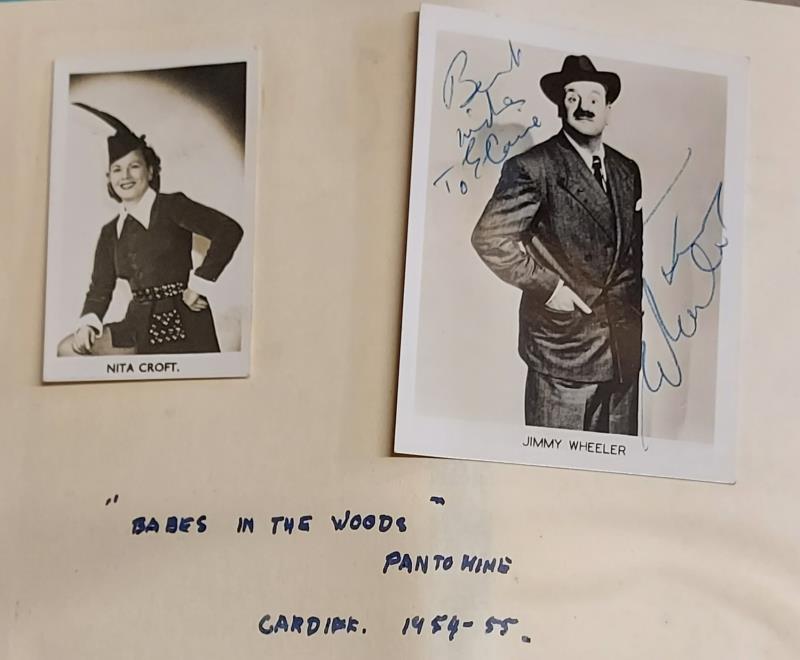 NITA CROFT.
Best
wishes
To Elaine
Wheeler
JIMMY WHEELER
" BABES IN THE WOODS "
PANTOMINE
CARDIFF. 1954-55.